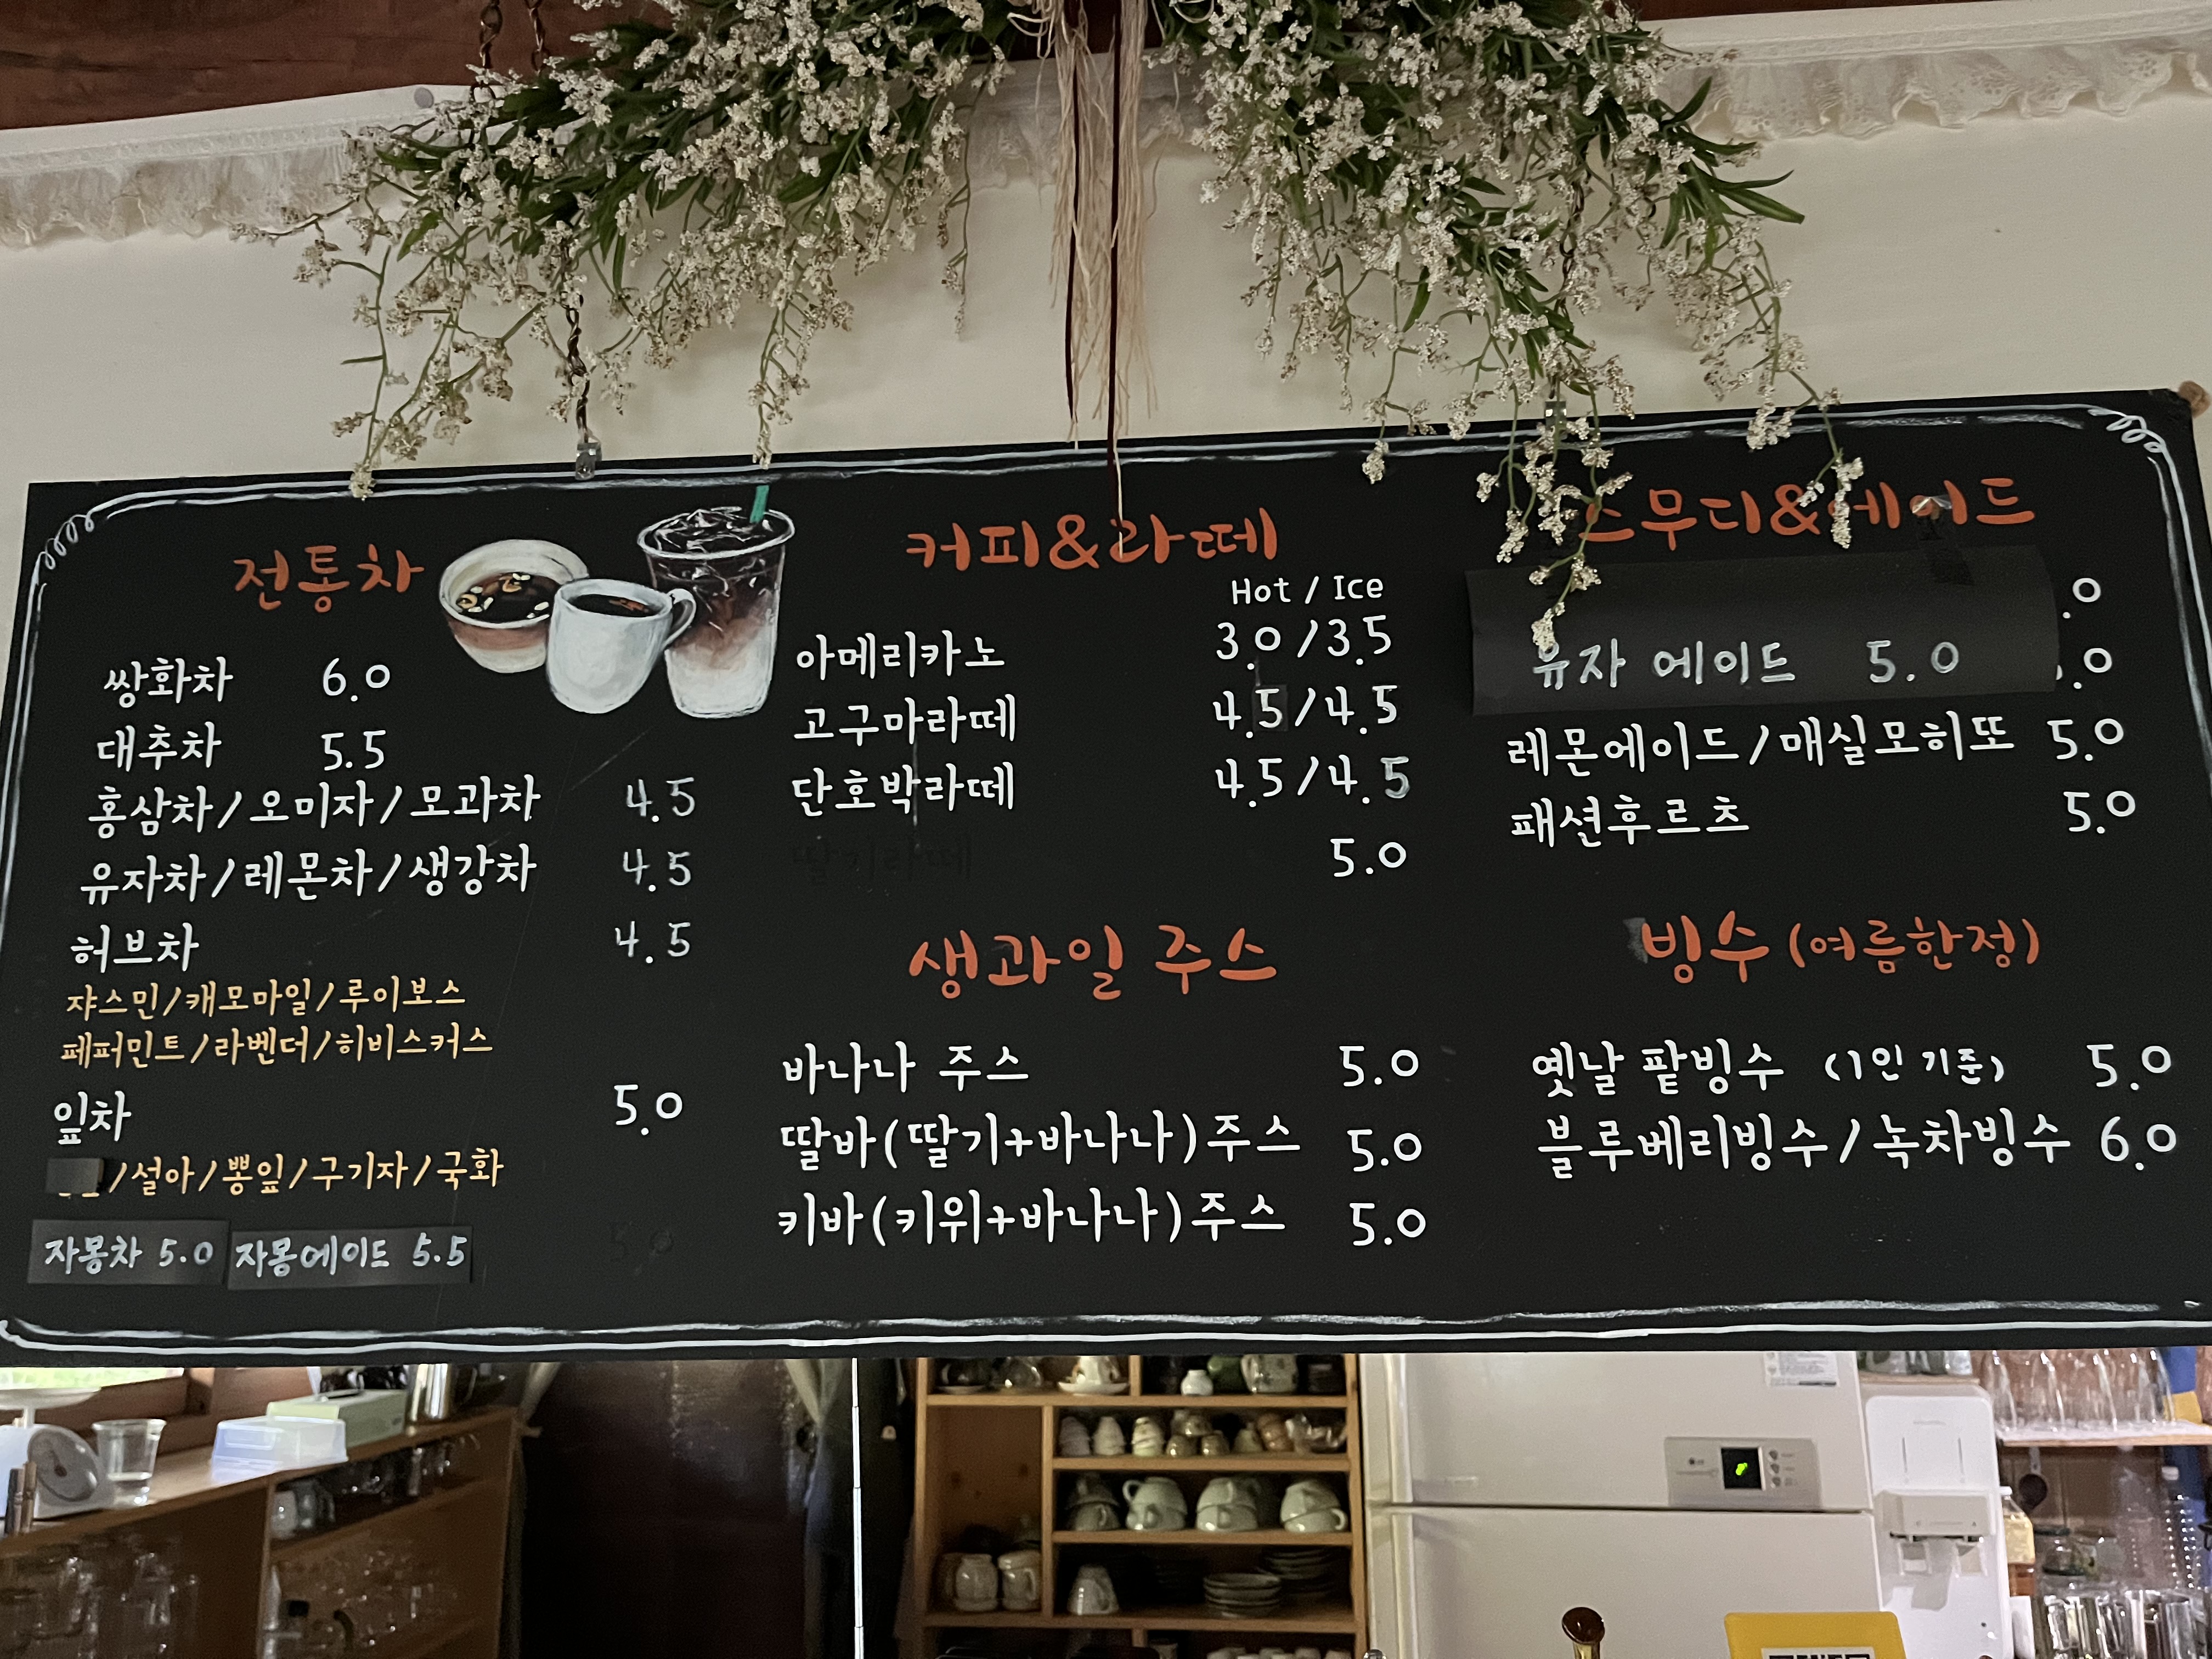 전통차
쌍화차 6.0
대추차 5.5
홍삼차/오미자/모과차 4.5
유자차/레몬차/생강차 4.5
허브차 4.5
쟈스민/캐모마일/루이보스
페퍼민트/라벤더/히비스커스
잎차 5.0
/설아/뽕잎/구기자/국화
자몽차 5.0 자몽에이드 5.5
5.0
커피&라떼
Hot / Ice
아메리카노 3.0/3.5
고구마라떼 4.5/4.5
단호박라떼 4.5/4.5
딸기라떼 5.0
생과일 주스
바나나 주스 5.0
딸바(딸기+바나나)주스 5.0
키바(키위+바나나)주스 5.0
스무디&에이드
.0
유자 에이드 5.0 .0
레몬에이드/매실모히또 5.0
패션후르츠 5.0
빙수(여름한정)
옛날 팥빙수 (1인 기준) 5.0
블루베리빙수/녹차빙수 6.0